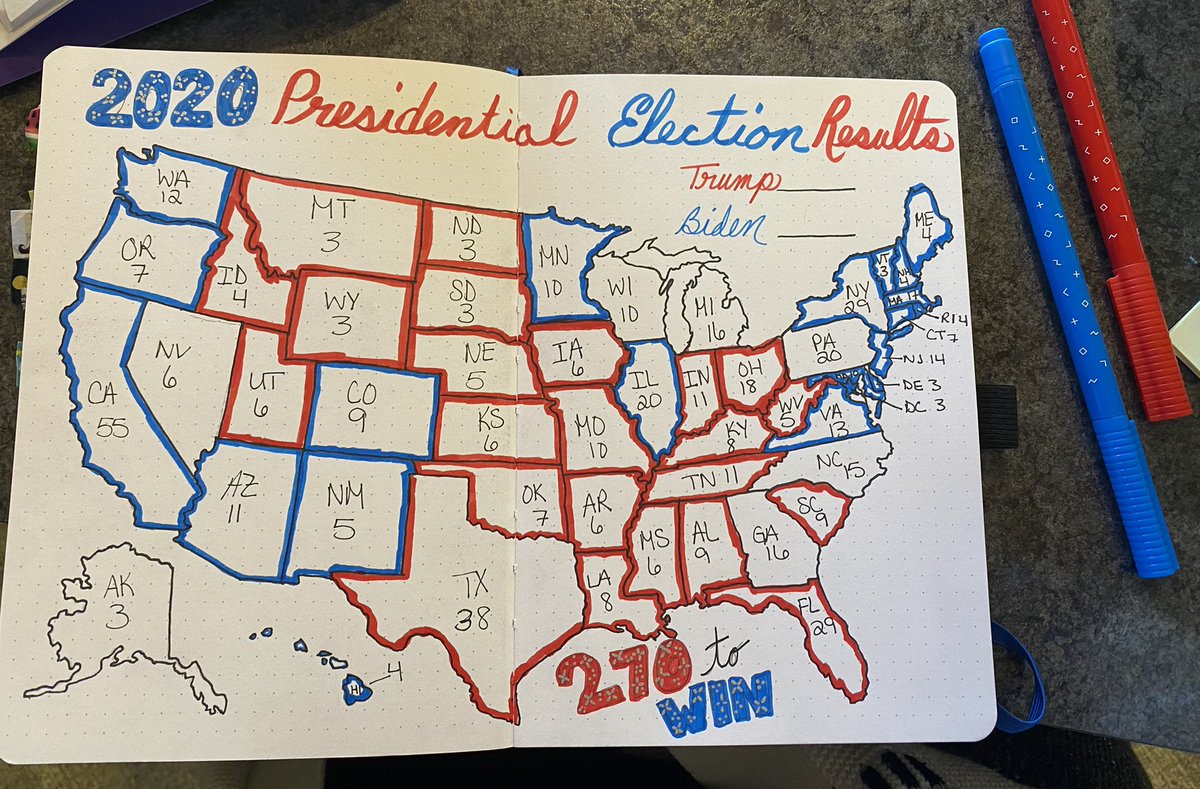 2020 Presidential Election Results
Trump
Biden
WA
12
OR
7
CA
55
NV
6
ID
4
MT
3
WY
3
UT
6
CO
9
AZ
11
NM
5
ND
3
SD
3
NE
5
KS
6
OK
7
TX
38
MN
10
IA
6
MO
10
AR
6
LA
8
WI
10
IL
20
MI
16
IN
11
OH
18
KY
8
TN 11
MS
6
AL
9
GA
16
FL
29
SC
9
NC 15
VA
13
WV
5
PA
20
NY
29
VT
3
NH
4
ME
4
MA 11
RI 4
CT 7
NJ 14
DE 3
DC 3
AK
3
HI
4
270 to
WIN